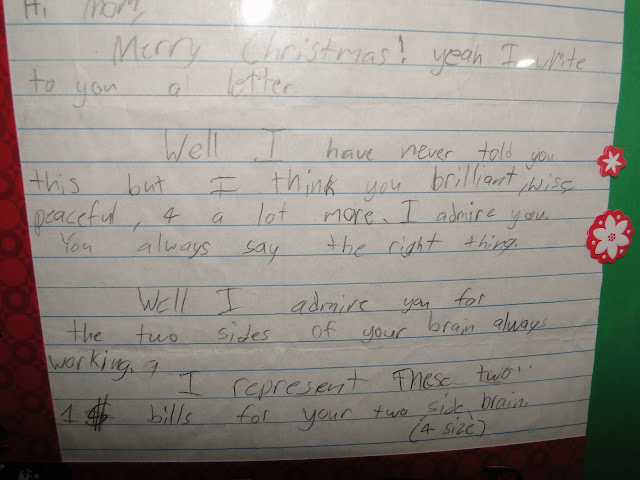 Hi Mom,
Merry Christmas! yeah I write
to you a letter
Well I have never told you
this but I think you brilliant, wise,
peaceful, & a lot more. I admire you.
You always say the right thing.
Well I admire you for
the two sides of your brain always
working.
I represent These two
1 $ bills for your two side brain.
(& size)